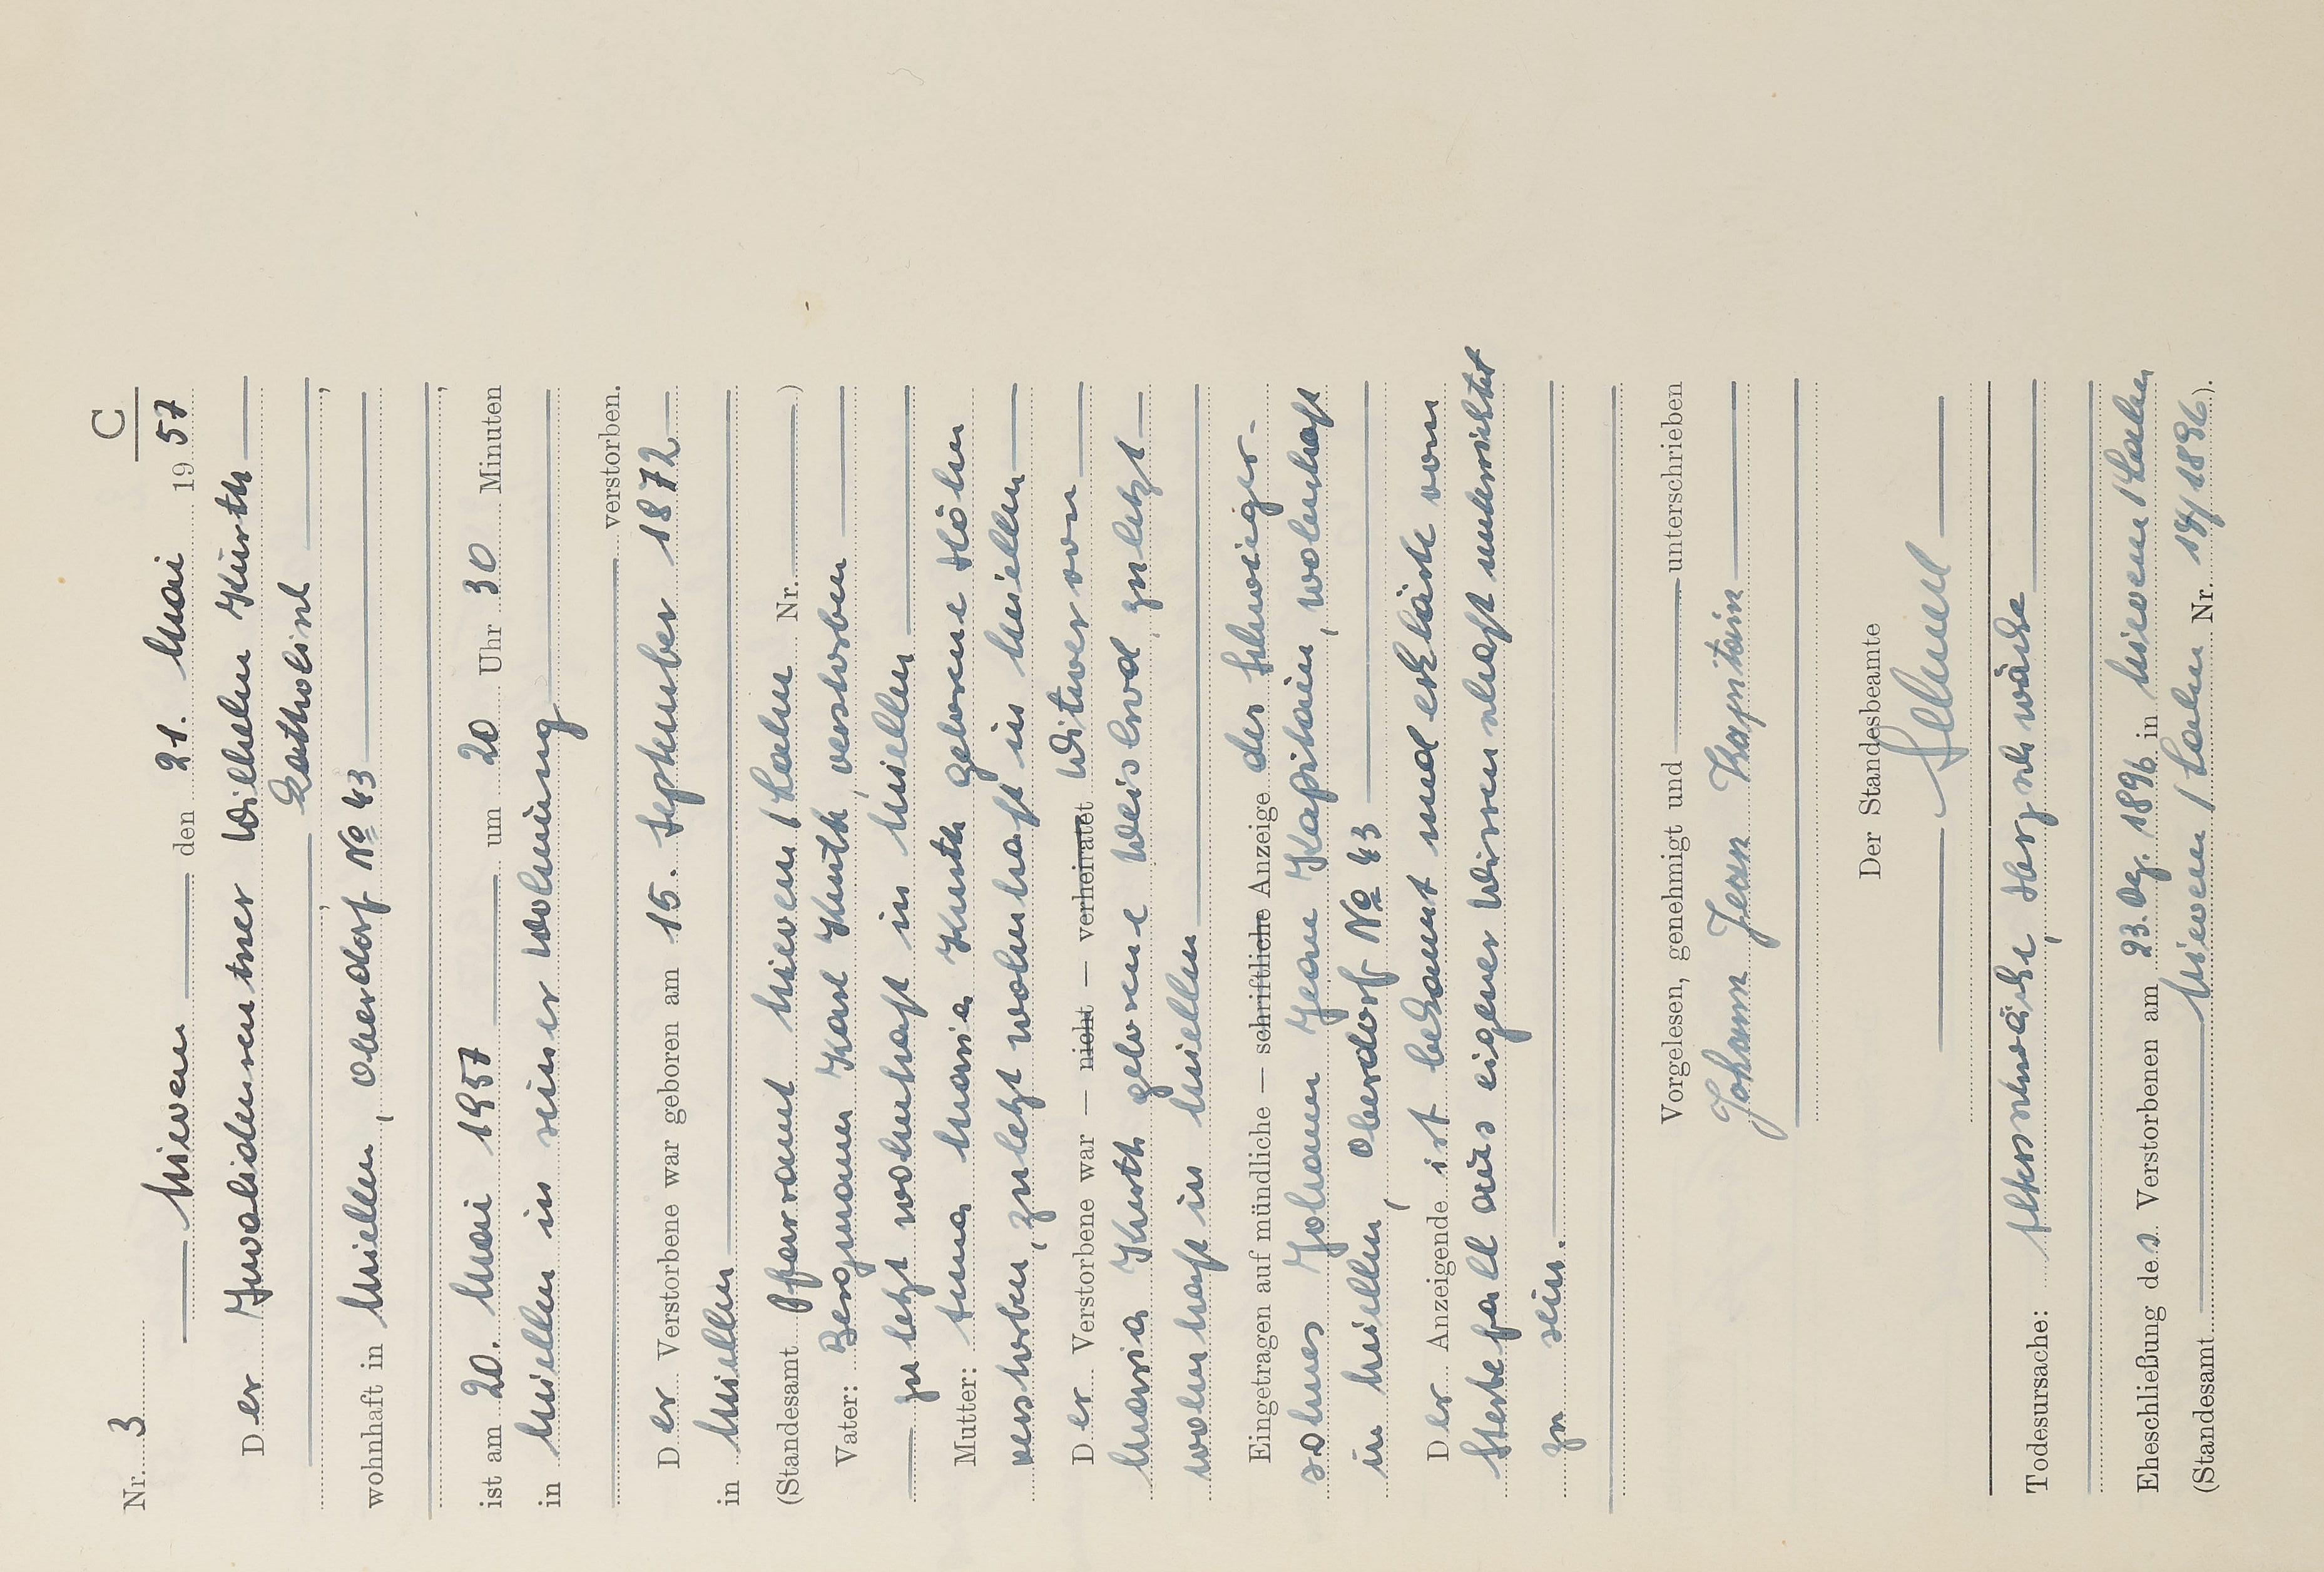 C
Nr. 3
Nievern den 21. Mai 1957
Der Invalidenrentner Wilhelm Kurth
katholisch
wohnhaft in Miellen, Oberdorf № 43,
ist am 20. Mai 1957 um 20 Uhr 30 Minuten
in Miellen in seiner Wohnung
verstorben.
Der Verstorbene war geboren am 15. September 1872
in Miellen
(Standesamt Pfarramt Nievern/Lahn Nr. )
Vater: Bergmann Karl Kurth, verstorben
zuletzt wohnhaft in Miellen
Mutter: Anna Maria Kurth geborene Höhn
verstorben, zuletzt wohnhaft in Miellen
Der Verstorbene war — nicht — verheiratet Witwer von
Maria Kurth geborene zuletzt
wohnhaft in Miellen
Eingetragen auf mündliche — schriftliche Anzeige des Schwieger-
sohnes Johann Jean Kapitain, wohnhaft
in Miellen, Oberdorf № 43
Der Anzeigende ist bekannt und erklärte vom
Sterbefall aus eigener Wissenschaft unterrichtet
zu sein.
Vorgelesen, genehmigt und unterschrieben
Johann Jean Kapitain
Der Standesbeamte
Todesursache: Altersschwäche, Herzschwäche
Eheschließung des Verstorbenen am 23. Dez. 1896 in Nievern/Lahn
(Standesamt Nievern/Lahn Nr. 18/1896).